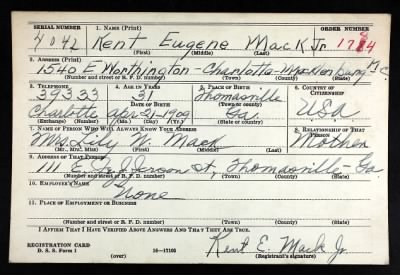 SERIAL NUMBER 1. NAME (Print) ORDER NUMBER
4042 Kent Eugene Mack Jr 1784
(First) (Middle) (Last)
2. ADDRESS (Print)
1540 E Worthington - Charlotte - Mecklenburg N.C.
(Number and street or R. F. D. number) (Town) (County) (State)
3. TELEPHONE 4. AGE IN YEARS 5. PLACE OF BIRTH 6. COUNTRY OF CITIZENSHIP
39333 31 Thomasville
DATE OF BIRTH (Town or county)
Charlotte Apr-21-1909 Ga. USA
(Exchange) (Number) (Mo.) (Day) (Yr.) (State or country)
7. NAME OF PERSON WHO WILL ALWAYS KNOW YOUR ADDRESS 8. RELATIONSHIP OF THAT PERSON
Mrs. Lily Mack Mother
(Mr., Mrs., Miss) (First) (Middle) (Last)
9. ADDRESS OF THAT PERSON
1111 E. Jefferson St, Thomasville - Ga.
(Number and street or R. F. D. number) (Town) (County) (State)
10. EMPLOYER'S NAME
None
11. PLACE OF EMPLOYMENT OR BUSINESS
(Number and street or R. F. D. number) (Town) (County) (State)
I AFFIRM THAT I HAVE VERIFIED ABOVE ANSWERS AND THAT THEY ARE TRUE.
REGISTRATION CARD
D. S. S. Form 1 (over) 16-17105 Kent E. Mack Jr.